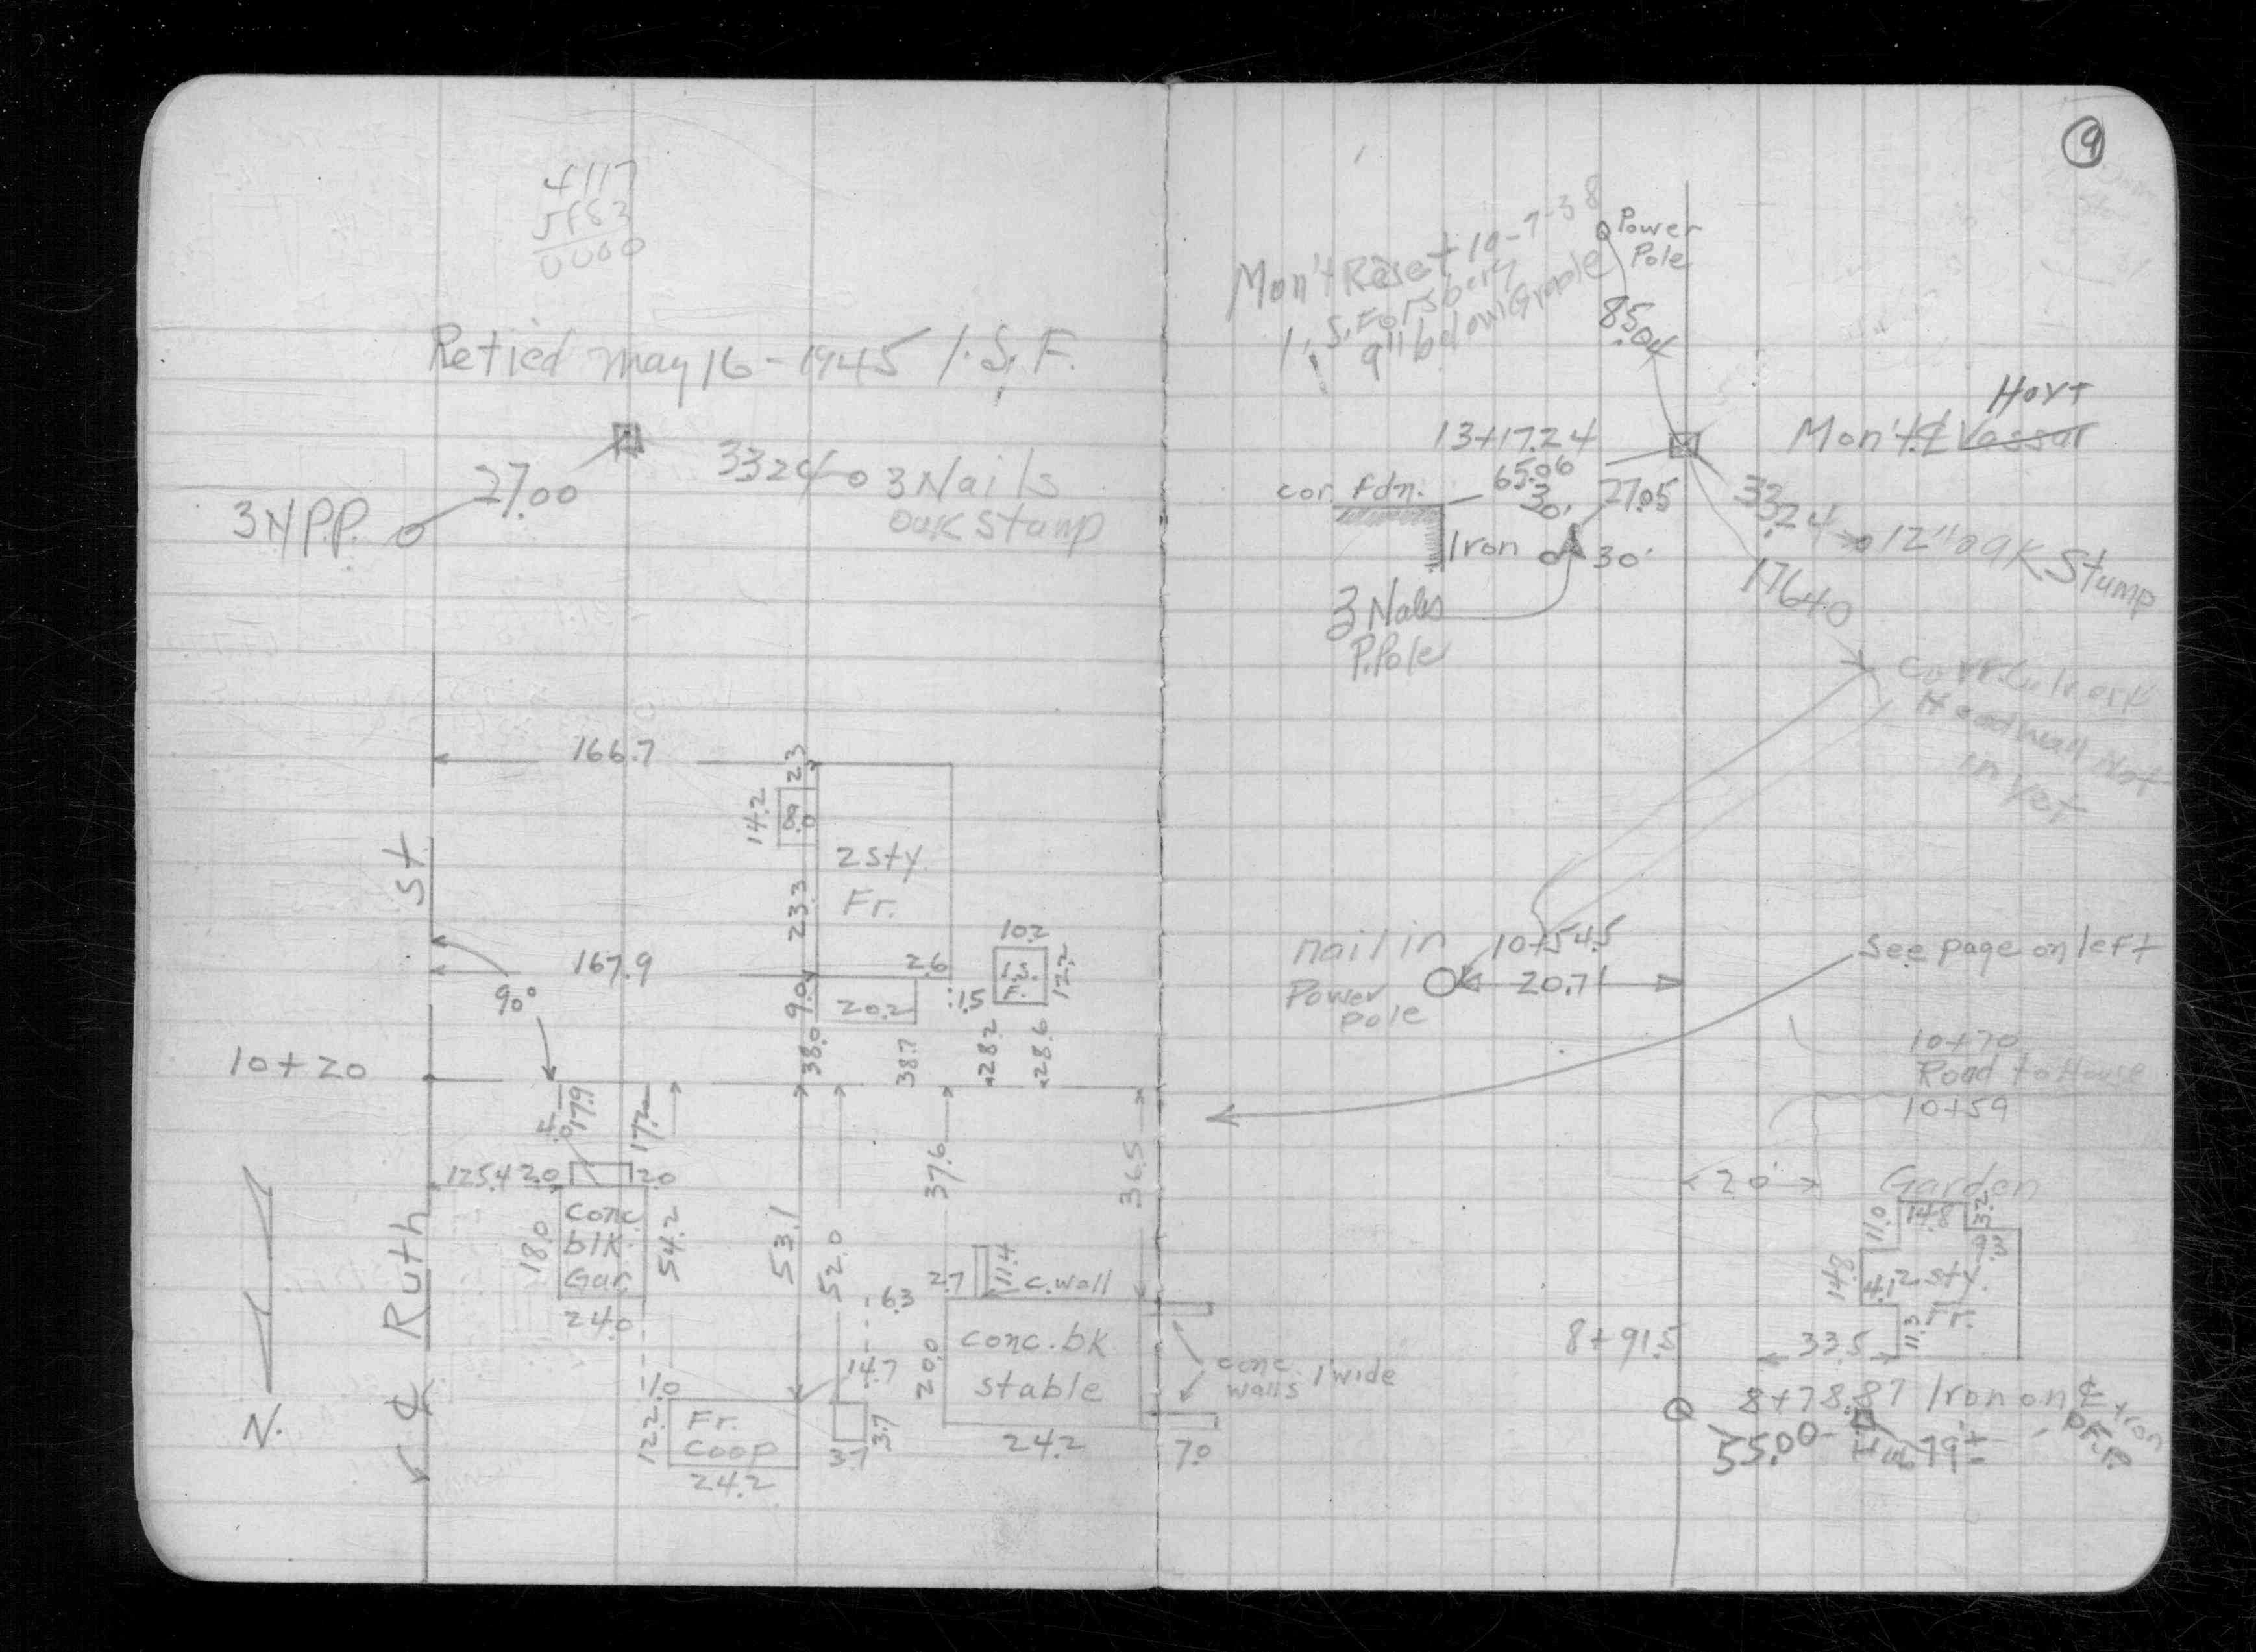 Retied May 16-1945 I.S.F.
27.00
33.24
3 Nails
oak stump
3 N P.P.
166.7
2.3
14.2
8.0
2 sty.
Fr.
23.3
St
167.9
2.6
90°
9.0
20.2
1.5
10.2
1 S.
F.
12.2
10+20
38.0
38.7
28.2
28.6
4.0
17.9
125.4
2.0
2.0
18.0
conc
blk.
Gar.
54.2
24.0
53.1
52.0
37.6
36.5
6.3
2.7
11.4
c. wall
Ruth
℄
14.7
20.0
conc. bk
stable
1.0
12.2
Fr.
coop
24.2
3.7
3.7
24.2
7.0
N.
9
Mon't Reset 10-7-38
I.S. Forsbery
9" below Grade
Power
Pole
85.04
Hoyt
13+17.24
Mon't. ℄ Vassar
65.06
cor. fdn.
30'
27.05
33.24
12" oak Stump
Iron
30'
176.40
3 Nails
P. Pole
Headwall Not
in Yet
nail in
Power
pole
10+54.5
20.71
See page on left
10+70
Road to House
10+59
20'
Garden
11.0
14.8
3.2
9.3
14.8
4.1
2. sty.
Fr.
11.3
8+91.5
33.5
conc.
walls 1' wide
8+78.87 Iron on ℄
55.00